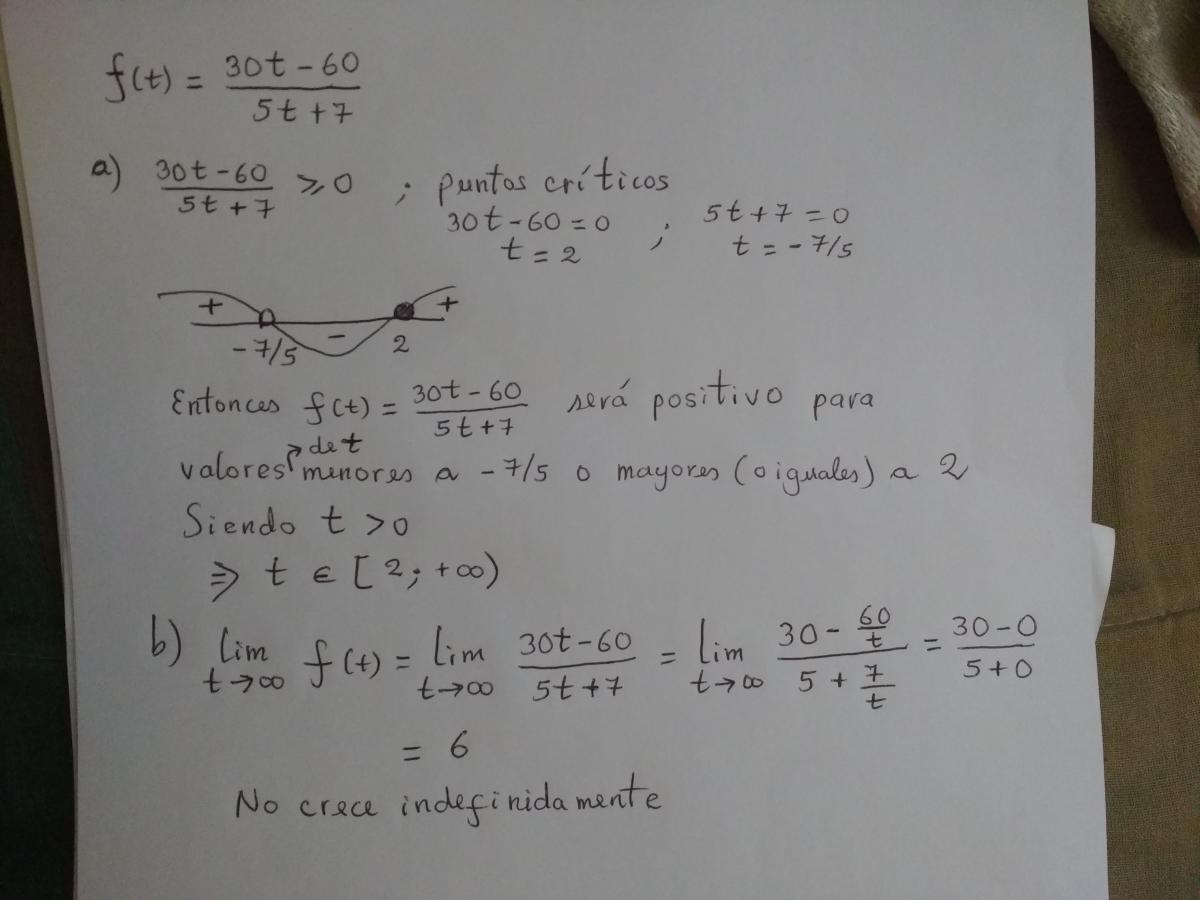 f(t) = (30t - 60)/(5t + 7)
a) (30t - 60)/(5t + 7) ⩾ 0 ; puntos críticos
30t - 60 = 0 ; 5t + 7 = 0
t = 2 t = - 7/5
+ - +
- 7/5 2
Entonces f(t) = (30t - 60)/(5t + 7) será positivo para
valores de t menores a - 7/5 o mayores (o iguales) a 2
Siendo t > 0
⇒ t ∈ [2; +∞)
b) lim t→∞ f(t) = lim t→∞ (30t - 60)/(5t + 7) = lim t→∞ (30 - 60/t)/(5 + 7/t) = (30 - 0)/(5 + 0)
= 6
No crece indefinidamente